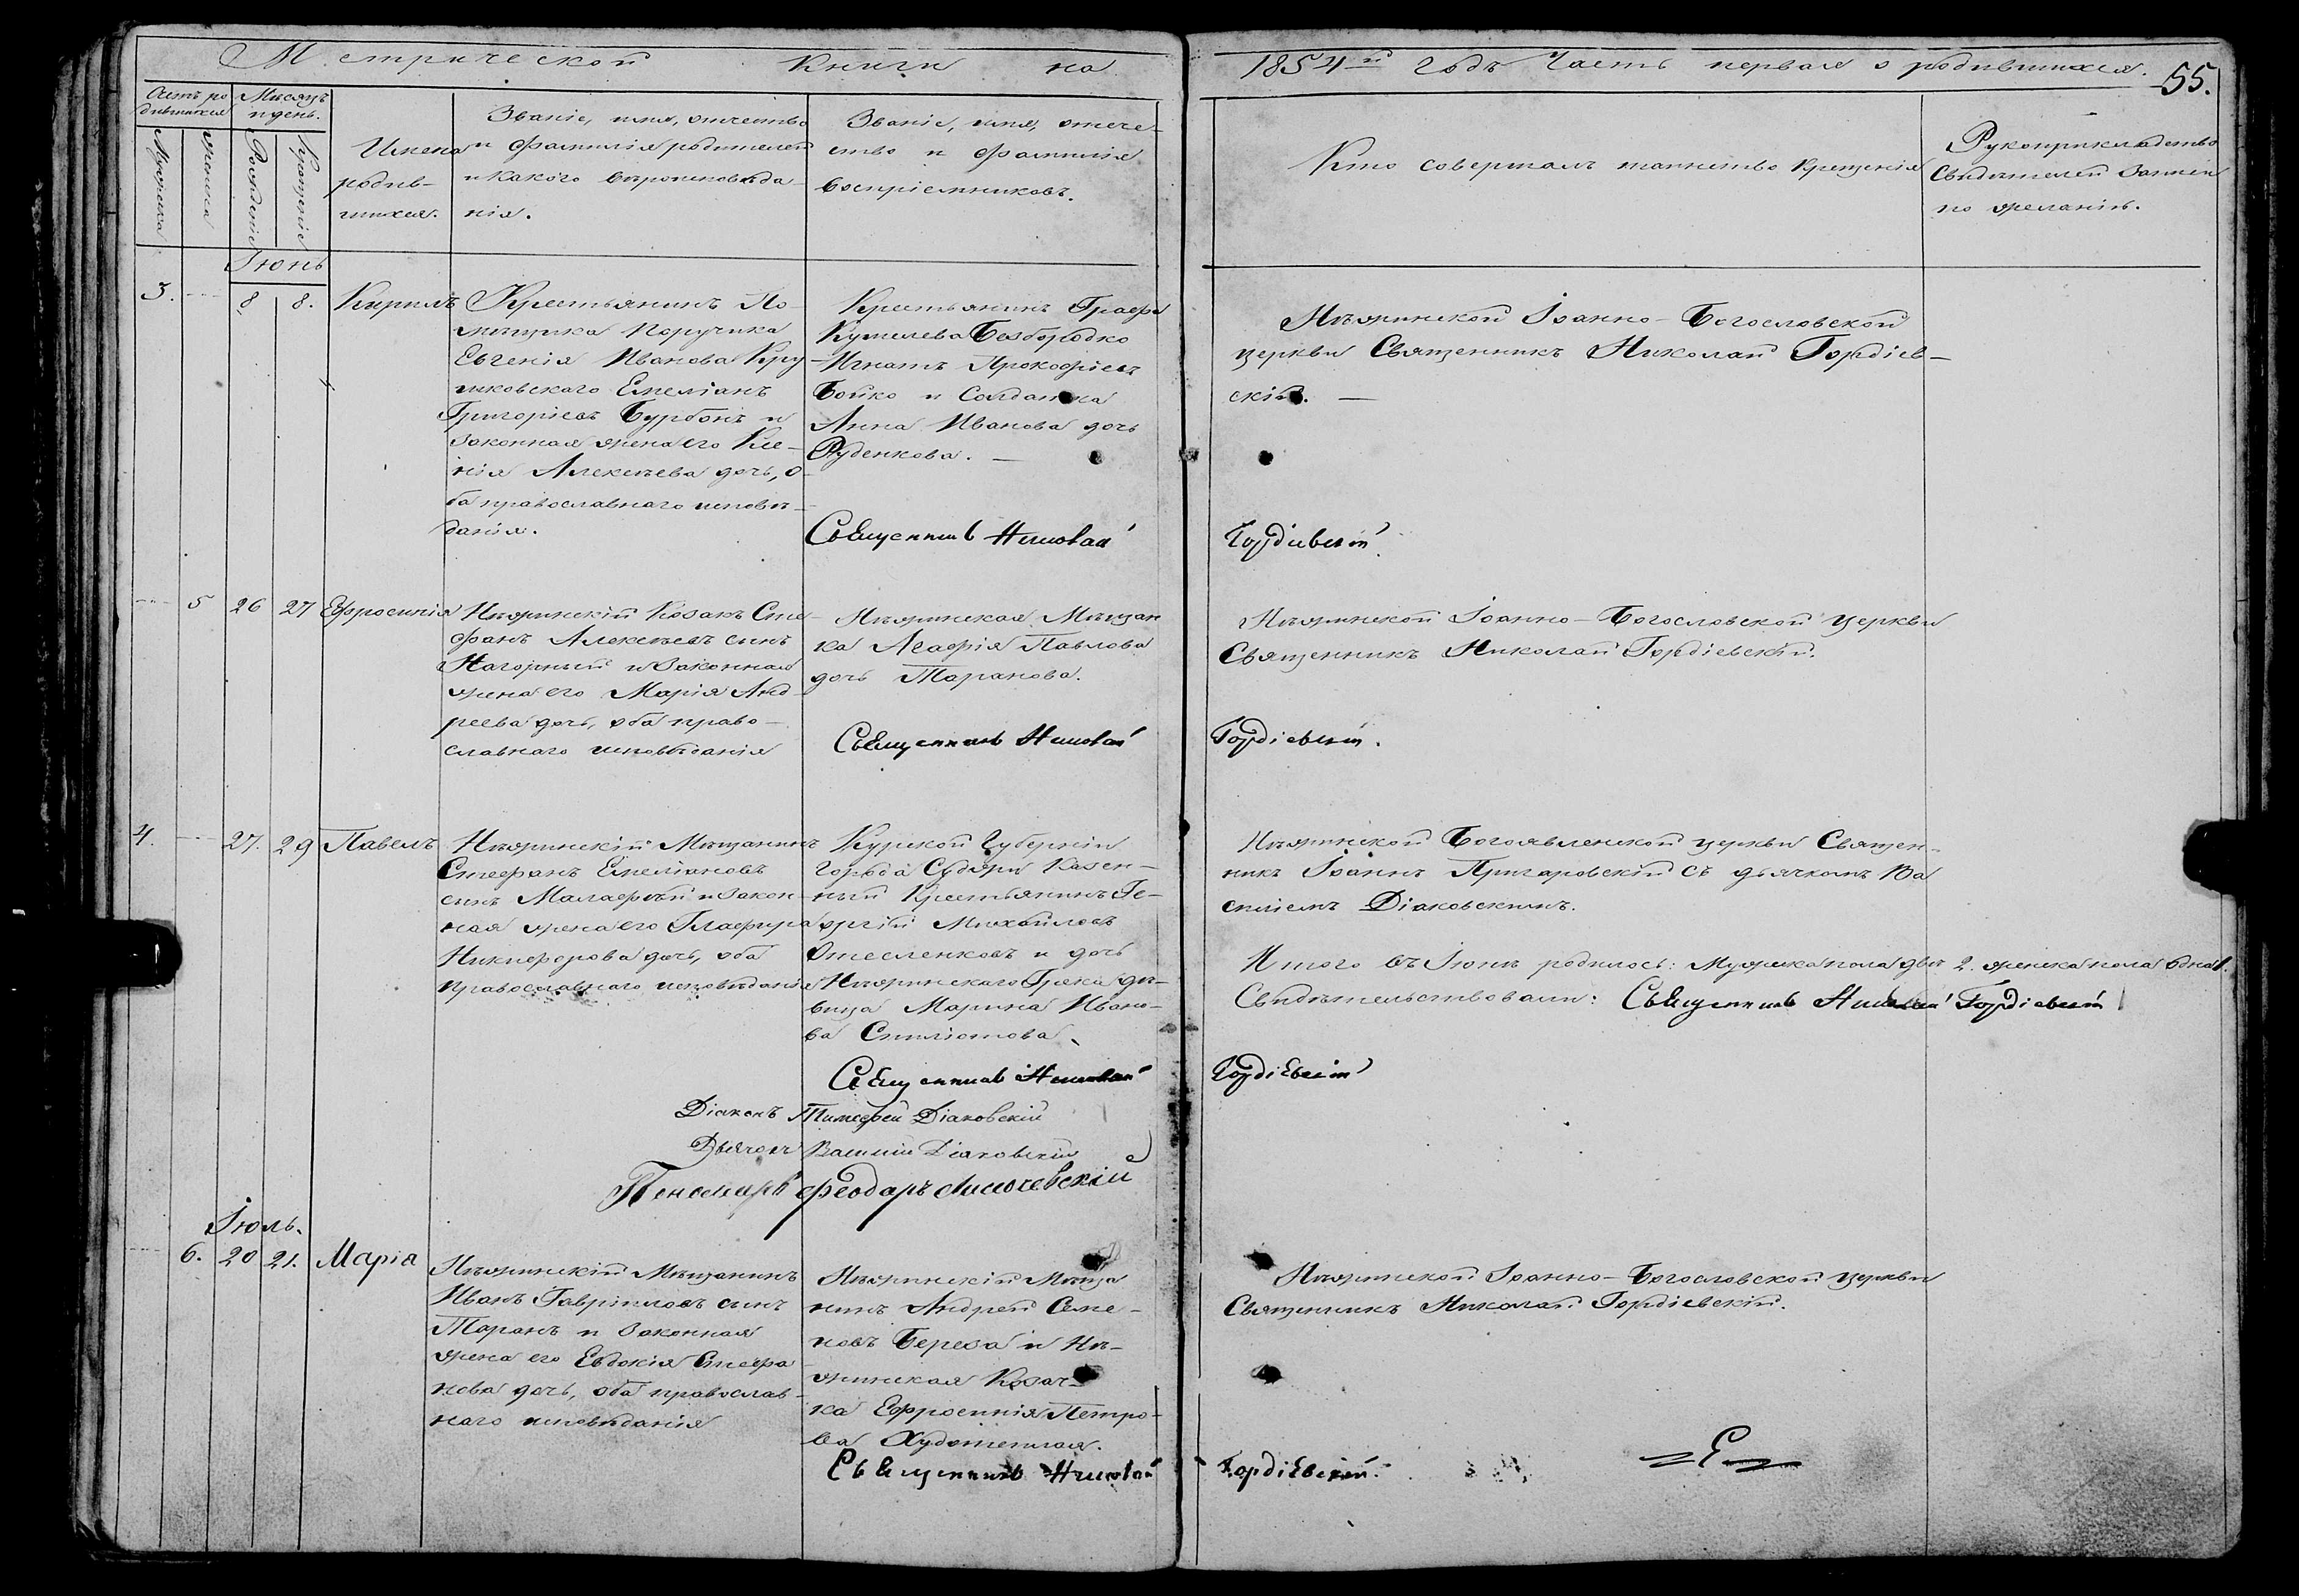 Метрической Книги на 1854й Годъ Часть первая о родившихся. 55.
Счетъ родившихся
Мужеска
женска
Мѣсяцъ и день.
Рожденіе
Крещеніе
Имена
родив-
шихся.
Званіе, имя, отчество
и Фамилія родителей
и какого вѣроисповѣда-
нія.
Званіе, имя, отече-
ство и Фамилія
воспріемниковъ.
Кто совершалъ таинство Крещенія
Рукоприкладство
Свидѣтелей записи
по желанію.
Іюнь
3. 8. 8. Кирилъ
Крестьянинъ По-
мѣщика Поручика
Евгенія Иванова Кру-
шковскаго Емеліанъ
Григоріевъ Бурбонъ и
законная жена его Ксе-
нія Алексѣева дочь, о-
ба православнаго исповѣ-
данія.
Крестьянинъ Графа
Кушелева Безбородко
Игнатъ Прокофіевъ
Бойко и Солдатка
Анна Иванова дочь
Руденкова.
Священникъ Николай
Нѣжинской Іоанно-Богословской
церкви Священникъ Николай Гордіев-
скій.
Гордіевскій
5 26 27 Ефросинія
Нѣжинскій Козакъ Сте-
фанъ Алексѣевъ сынъ
Нагорный и законная
жена его Марія Анд-
реева дочь, оба право-
славнаго исповѣданія
Нѣжинская Мѣщан
ка Агафія Павлова
дочь Таранова.
Священникъ Николай
Нѣжинской Іоанно-Богословской церкви
Священникъ Николай Гордіевскій.
Гордіевскій.
4. 27. 29 Павелъ
Нѣжинскій Мѣщанинъ
Стефанъ Емеліановъ
сынъ Малафѣй и закон-
ная жена его Глафира
Никифорова дочь, оба
православнаго исповѣданія
Курской Губерніи
города Суджи Казен-
ный Крестьянинъ Ге-
оргій Михайловъ
Отесленковъ и дочь
Нѣжинскаго Грека дѣ-
вица Марина Ивано-
ва Спиліотова
Священникъ Николай
Діаконъ Тимофей Діаковскій
Дьячокъ Василій Діаковскій
Пономарь Феодоръ Лисочевскій
Нѣжинской Богоявленской церкви Священ-
никъ Іоаннъ Пригаровскій съ дьячкомъ Ва
силіемъ Діаковскимъ.
Итого въ Іюнѣ родилось: Мужеска пола два 2. женска пола одна 1.
Свидѣтельствовали: Священникъ Николай Гордіевскій
Гордіевскій
Іюль.
6. 20 21. Марія
Нѣжинскій Мѣщанинъ
Иванъ Гавріиловъ сынъ
Таранъ и законная
жена его Евдокія Стефа
нова дочь, оба православ-
наго исповѣданія
Нѣжинскій Мѣща
нинъ Андрей Семе-
новъ Береза и Нѣ-
жинская Козач-
ка Ефросинія Петро-
ва Худотеплая.
Священникъ Николай
Нѣжинской Іоанно-Богословской церкви
Священникъ Николай Гордіевскій.
Гордіевскій.